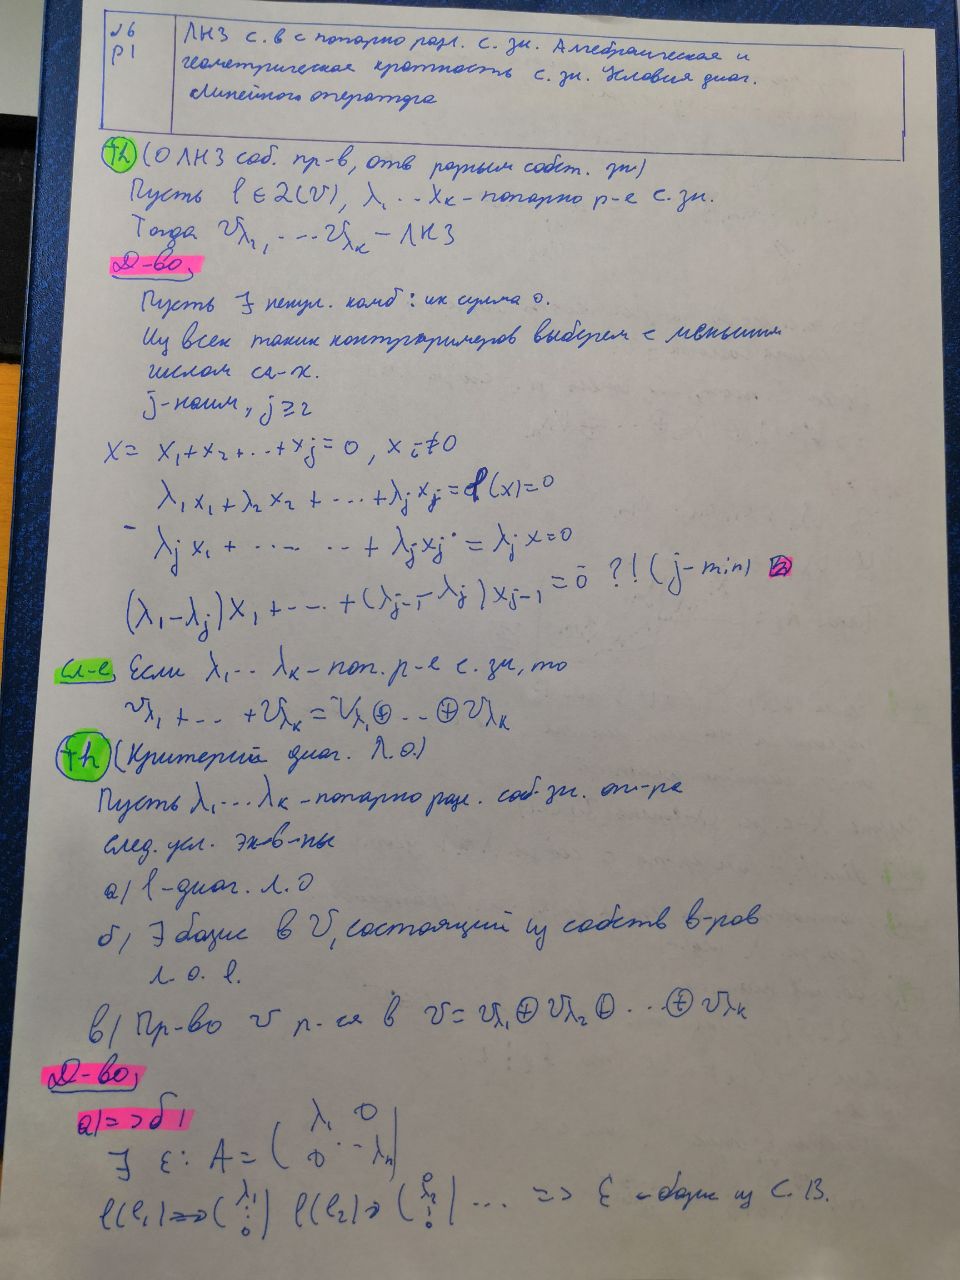 №6
p1
ЛНЗ с. в с попарно разл. с. зн. Алгебраическая и
геометрическая кратность с. зн. Условия диаг.
линейного оператора
th (О ЛНЗ соб. пр-в, отв разным собст. зн)
Пусть φ ∈ L(V), λ₁ ... λₖ - попарно р-е с. зн.
Тогда Vλ₁, ... Vλₖ - ЛНЗ
Д-во,
Пусть ∃ ненул. комб : их сумма 0.
Из всех таких контрпримеров выберем с меньшим
числом сл-х.
j-наим, j ≥ 2
x = x₁ + x₂ + ... + xⱼ = 0, xᵢ ≠ 0
λ₁x₁ + λ₂x₂ + ... + λⱼxⱼ = φ(x) = 0
- λⱼx₁ + ... ... + λⱼxⱼ = λⱼx = 0
(λ₁ - λⱼ)x₁ + ... + (λⱼ₋₁ - λⱼ)xⱼ₋₁ = 0̄ ?! (j-min)
Сл-е Если λ₁ ... λₖ - поп. р-е с. зн, то
Vλ₁ + ... + Vλₖ = Vλ₁ ⊕ ... ⊕ Vλₖ
th (Критерий диаг. Л. О.)
Пусть λ₁ ... λₖ - попарно разл. соб. зн. оп-ра
след. усл. эк-в-ны
а) φ - диаг. л. О
б) ∃ базис в V, состоящий из собств в-ров
л. о. φ.
в) Пр-во V р-ся в V = Vλ₁ ⊕ Vλ₂ ⊕ ... ⊕ Vλₖ
Д-во,
а) => б)
∃ ε: A = (λ₁ 0
0 ... λₙ)
φ(e₁) => (λ₁ ⋮ 0) φ(e₂) → (0 λ₂ ⋮ 0) ... => ε - базис из С. В.